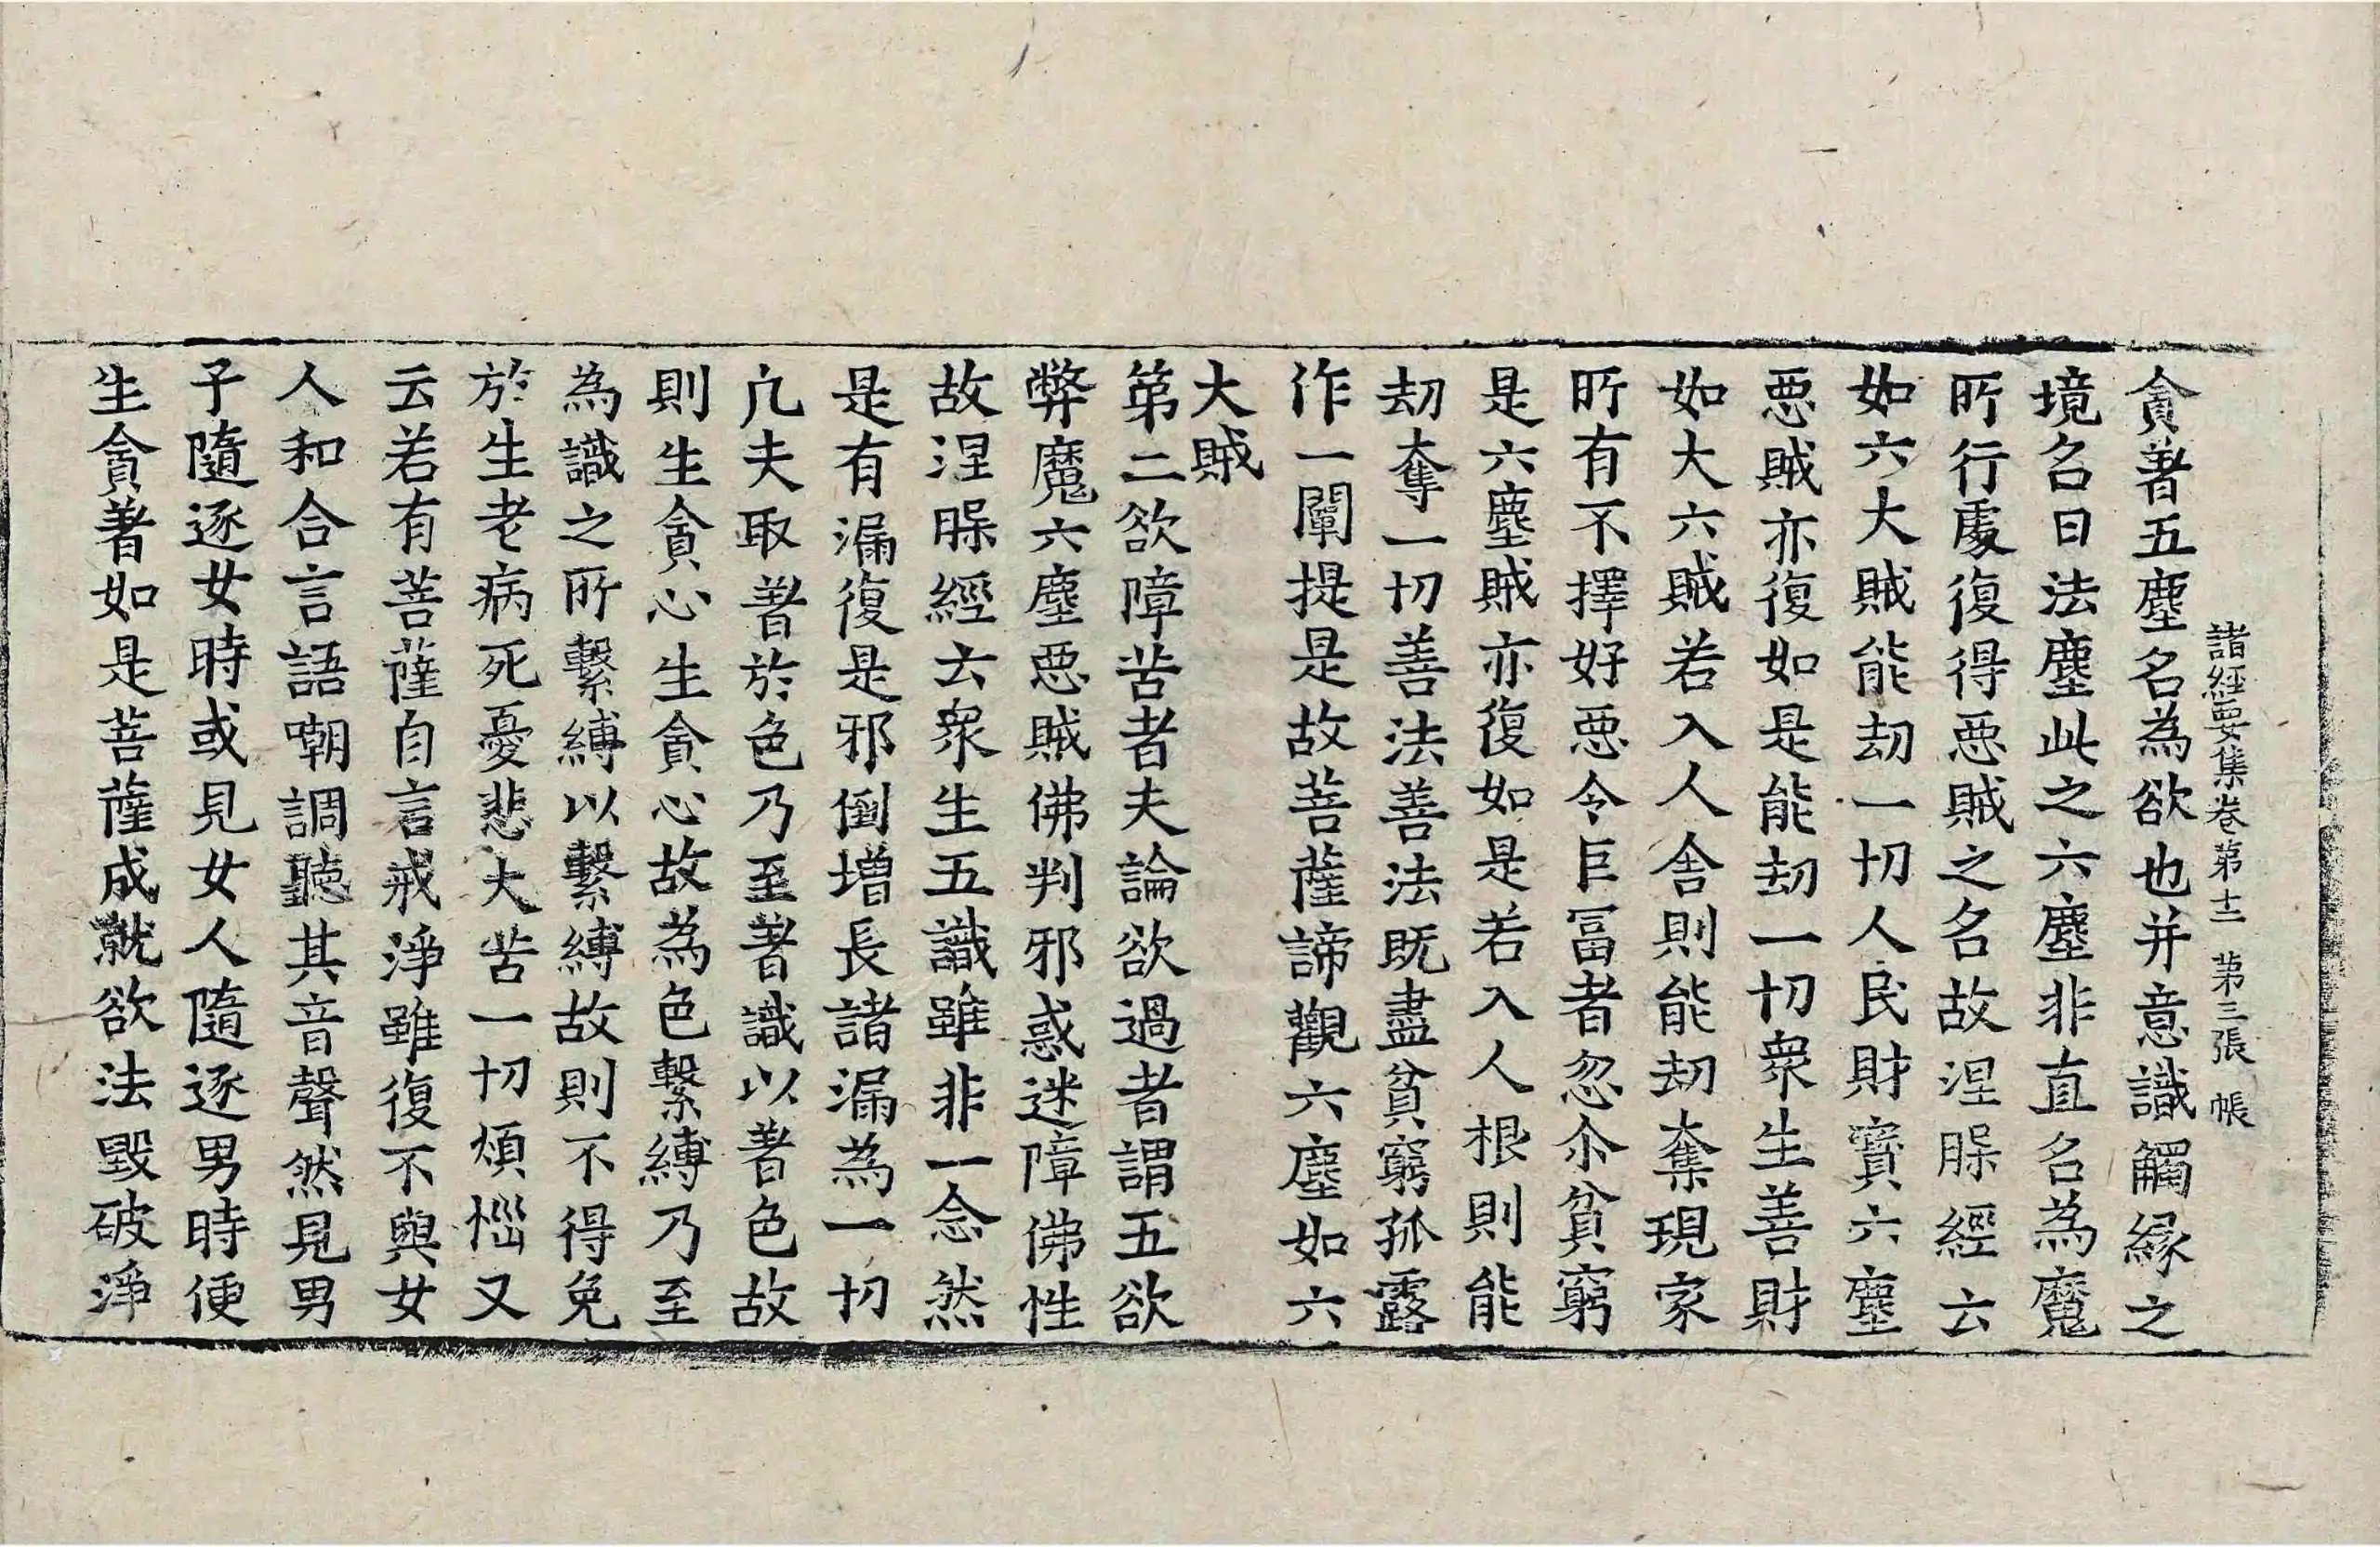 諸經要集卷第十二 第三張 帳
貪著五塵名為欲也并意識觸緣之
境名曰法塵此之六塵非直名為魔
所行處復得惡賊之名故涅槃經云
如六大賊能劫一切人民財寶六塵
惡賊亦復如是能劫一切衆生善財
如大六賊若入人舍則能劫奪現家
所有不擇好惡令巨冨者忽尒貧窮
是六塵賊亦復如是若入人根則能
劫奪一切善法善法既盡貧窮孤露
作一闡提是故菩薩諦觀六塵如六
大賊
第二欲障苦者夫論欲過者謂五欲
弊魔六塵惡賊佛判邪惑迷障佛性
故涅槃經云衆生五識雖非一念然
是有漏復是邪倒增長諸漏為一切
凡夫取著於色乃至著識以著色故
則生貪心生貪心故為色繫縛乃至
為識之所繫縛以繫縛故則不得免
於生老病死憂悲大苦一切煩惱又
云若有菩薩自言戒淨雖復不與女
人和合言語嘲調聽其音聲然見男
子隨逐女時或見女人隨逐男時便
生貪著如是菩薩成就欲法毀破淨